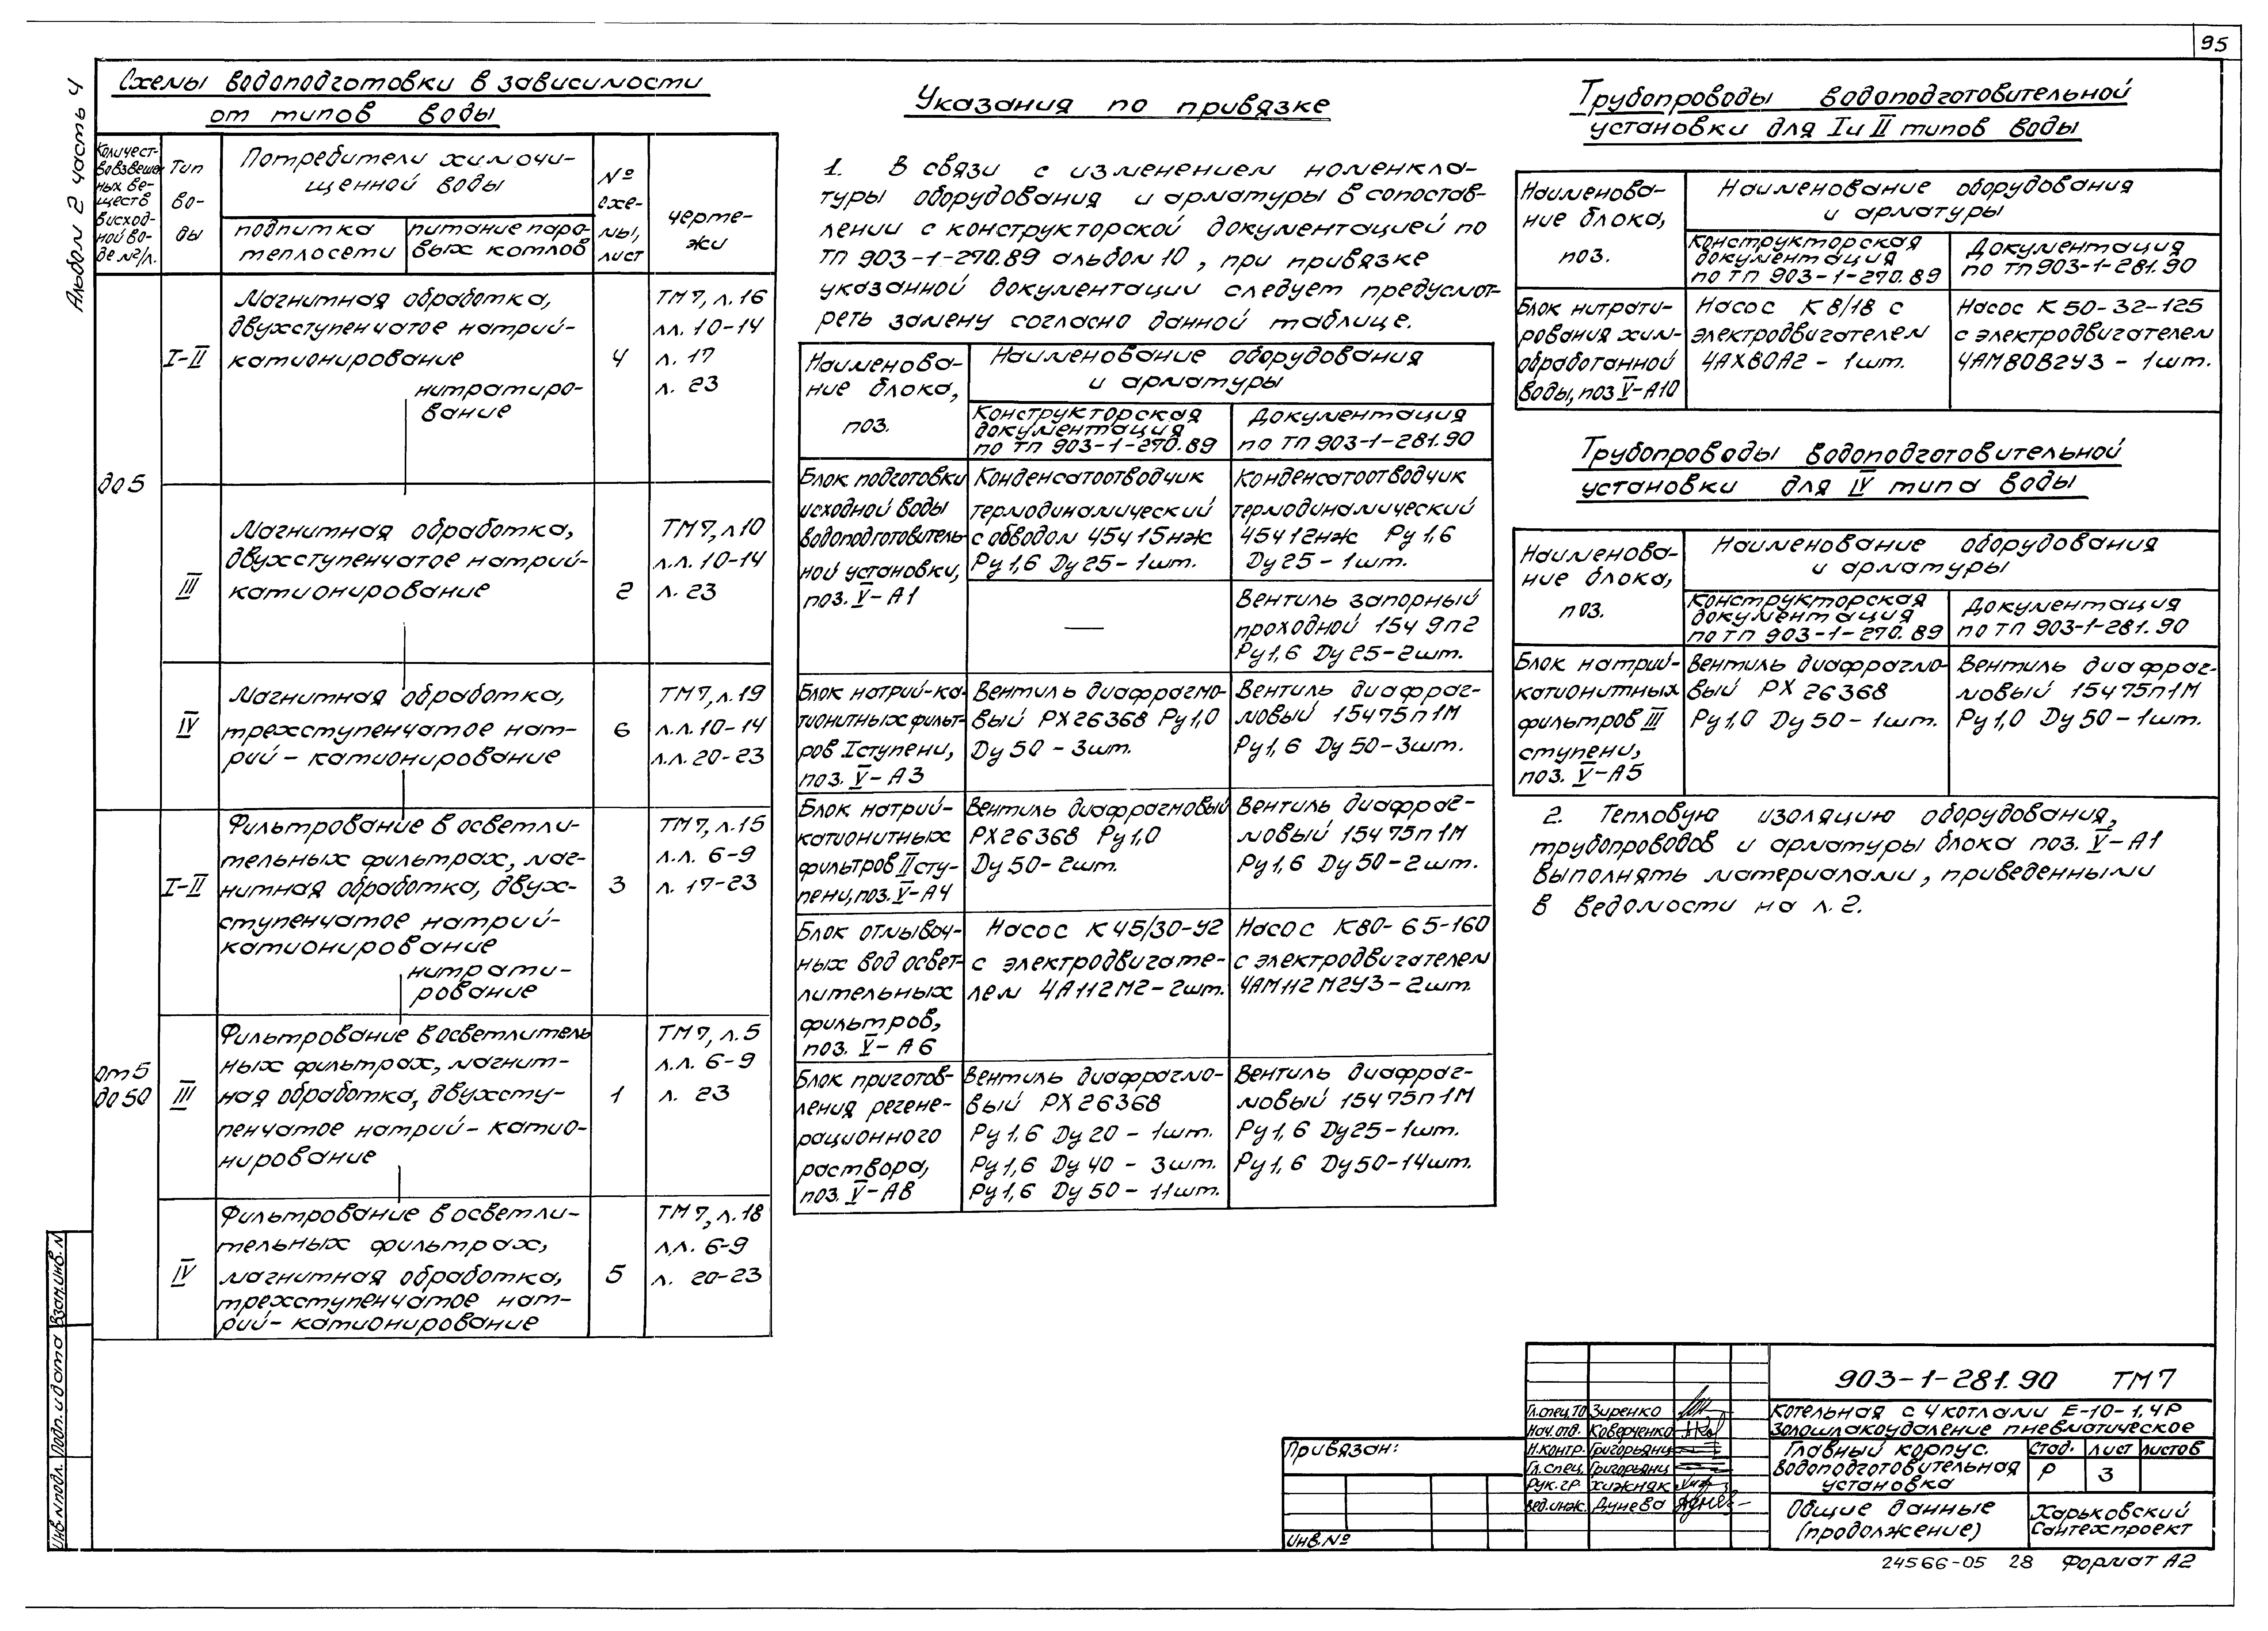 95
Альбом 2 часть 4
Схемы водоподготовки в зависимости
от типов воды
Количест-
во взвеше-
ных ве-
ществ
в исход-
ной во-
де мг/л.
Тип
во-
ды
Потребители химочи-
щенной воды
подпитка
теплосети
питание паро-
вых котлов
№
схе-
мы,
лист
черте-
жи
до 5
I-II
Магнитная обработка,
двухступенчатое натрий-
катионирование
нитратиро-
вание
4
ТМ7, л.16
лл. 10-14
л. 17
л. 23
III
Магнитная обработка,
двухступенчатое натрий-
катионирование
2
ТМ7, л10
л.л. 10-14
л. 23
IV
Магнитная обработка,
трехступенчатое нат-
рий-катионирование
6
ТМ7, л.19
л.л. 10-14
л.л. 20-23
от 5
до 50
I-II
Фильтрование в осветли-
тельных фильтрах, маг-
нитная обработка, двух-
ступенчатое натрий-
катионирование
нитрати-
рование
3
ТМ7, л.15
л.л. 6-9
л. 17-23
III
Фильтрование в осветлитель
ных фильтрах, магнит-
ная обработка, двухсту-
пенчатое натрий-катио-
нирование
1
ТМ7, л.5
л.л. 6-9
л. 23
IV
Фильтрование в осветли-
тельных фильтрах,
магнитная обработка,
трехступенчатое нат-
рий-катионирование
5
ТМ7, л.18
л.л. 6-9
л. 20-23
Указания по привязке
1. В связи с изменением номенкла-
туры оборудования и арматуры в сопостав-
лении с конструкторской документацией по
ТП 903-1-270.89 альбом 10, при привязке
указанной документации следует предусмот-
реть замену согласно данной таблице.
Наименова-
ние блока,
поз.
Наименование оборудования
и арматуры
Конструкторская
документация
по ТП 903-1-270.89
Документация
по ТП 903-1-281.90
Блок подготовки
исходной воды
водоподготовитель-
ной установки,
поз. V-А1
Конденсатоотводчик
термодинамический
с обводом 45ч15нж
Ру1,6 Ду25-1шт.
Конденсатоотводчик
термодинамический
45ч12нж Ру1,6
Ду25-1шт.
—
Вентиль запорный
проходной 15ч 9п2
Ру1,6 Ду25-2шт.
Блок натрий-ка-
тионитных фильт-
ров I ступени,
поз. V-А3
Вентиль диафрагмо-
вый РХ26368 Ру1,0
Ду50-3шт.
Вентиль диафраг-
мовый 15ч75п1М
Ру1,6 Ду50-3шт.
Блок натрий-
катионитных
фильтров II сту-
пени, поз. V-А4
Вентиль диафрагмовый
РХ26368 Ру1,0
Ду50-2шт.
Вентиль диафраг-
мовый 15ч75п1М
Ру1,6 Ду50-2шт.
Блок отмывоч-
ных вод освет-
лительных
фильтров,
поз. V-А6
Насос К45/30-У2
с электродвигате-
лем 4А112М2-2шт.
Насос К80-65-160
с электродвигателем
4АМ112М2У3-2шт.
Блок приготов-
ления регене-
рационного
раствора,
поз. V-А8
Вентиль диафрагмо-
вый РХ26368
Ру1,6 Ду20-1шт.
Ру1,6 Ду40-3шт.
Ру1,6 Ду50-11шт.
Вентиль диафраг-
мовый 15ч75п1М
Ру1,6 Ду25-1шт.
Ру1,6 Ду50-14шт.
Трубопроводы водоподготовительной
установки для I и II типов воды
Наименова-
ние блока,
поз.
Наименование оборудования
и арматуры
Конструкторская
документация
по ТП 903-1-270.89
Документация
по ТП 903-1-281.90
Блок нитрати-
рования хим-
обработанной
воды, поз V-А10
Насос К 8/18 с
электродвигателем
4АХ80А2-1шт.
Насос К 50-32-125
с электродвигателем
4АМ80В2У3-1шт.
Трубопроводы водоподготовительной
установки для IV типа воды
Наименова-
ние блока,
поз.
Наименование оборудования
и арматуры
Конструкторская
документация
по ТП 903-1-270.89
Документация
по ТП 903-1-281.90
Блок натрий-
катионитных
фильтров III
ступени,
поз. V-А5
Вентиль диафрагмо-
вый РХ 26368
Ру1,0 Ду50-1шт.
Вентиль диафраг-
мовый 15ч75п1М
Ру1,0 Ду50-1шт.
2. Тепловую изоляцию оборудования,
трубопроводов и арматуры блока поз. V-А1
выполнять материалами, приведенными
в ведомости на л.2.
Инв.№подл.
Подп. и дата
Взам.инв.N
Привязан:
Инв.№
Гл.спец.ТО Зиренко
Нач.отд. Коверченко
Н.контр. Григорьянц
Гл.спец. Григорьянц
Рук.гр. Хижняк
Вед.инж. Дунева
903-1-281.90 ТМ7
Котельная с 4 котлами Е-10-1,4Р
Золошлакоудаление пневматическое
Главный корпус.
Водоподготовительная
установка
Стад. Лист Листов
Р 3
Общие данные
(продолжение)
Харьковский
Сантехпроект
24566-05 28 Формат А2